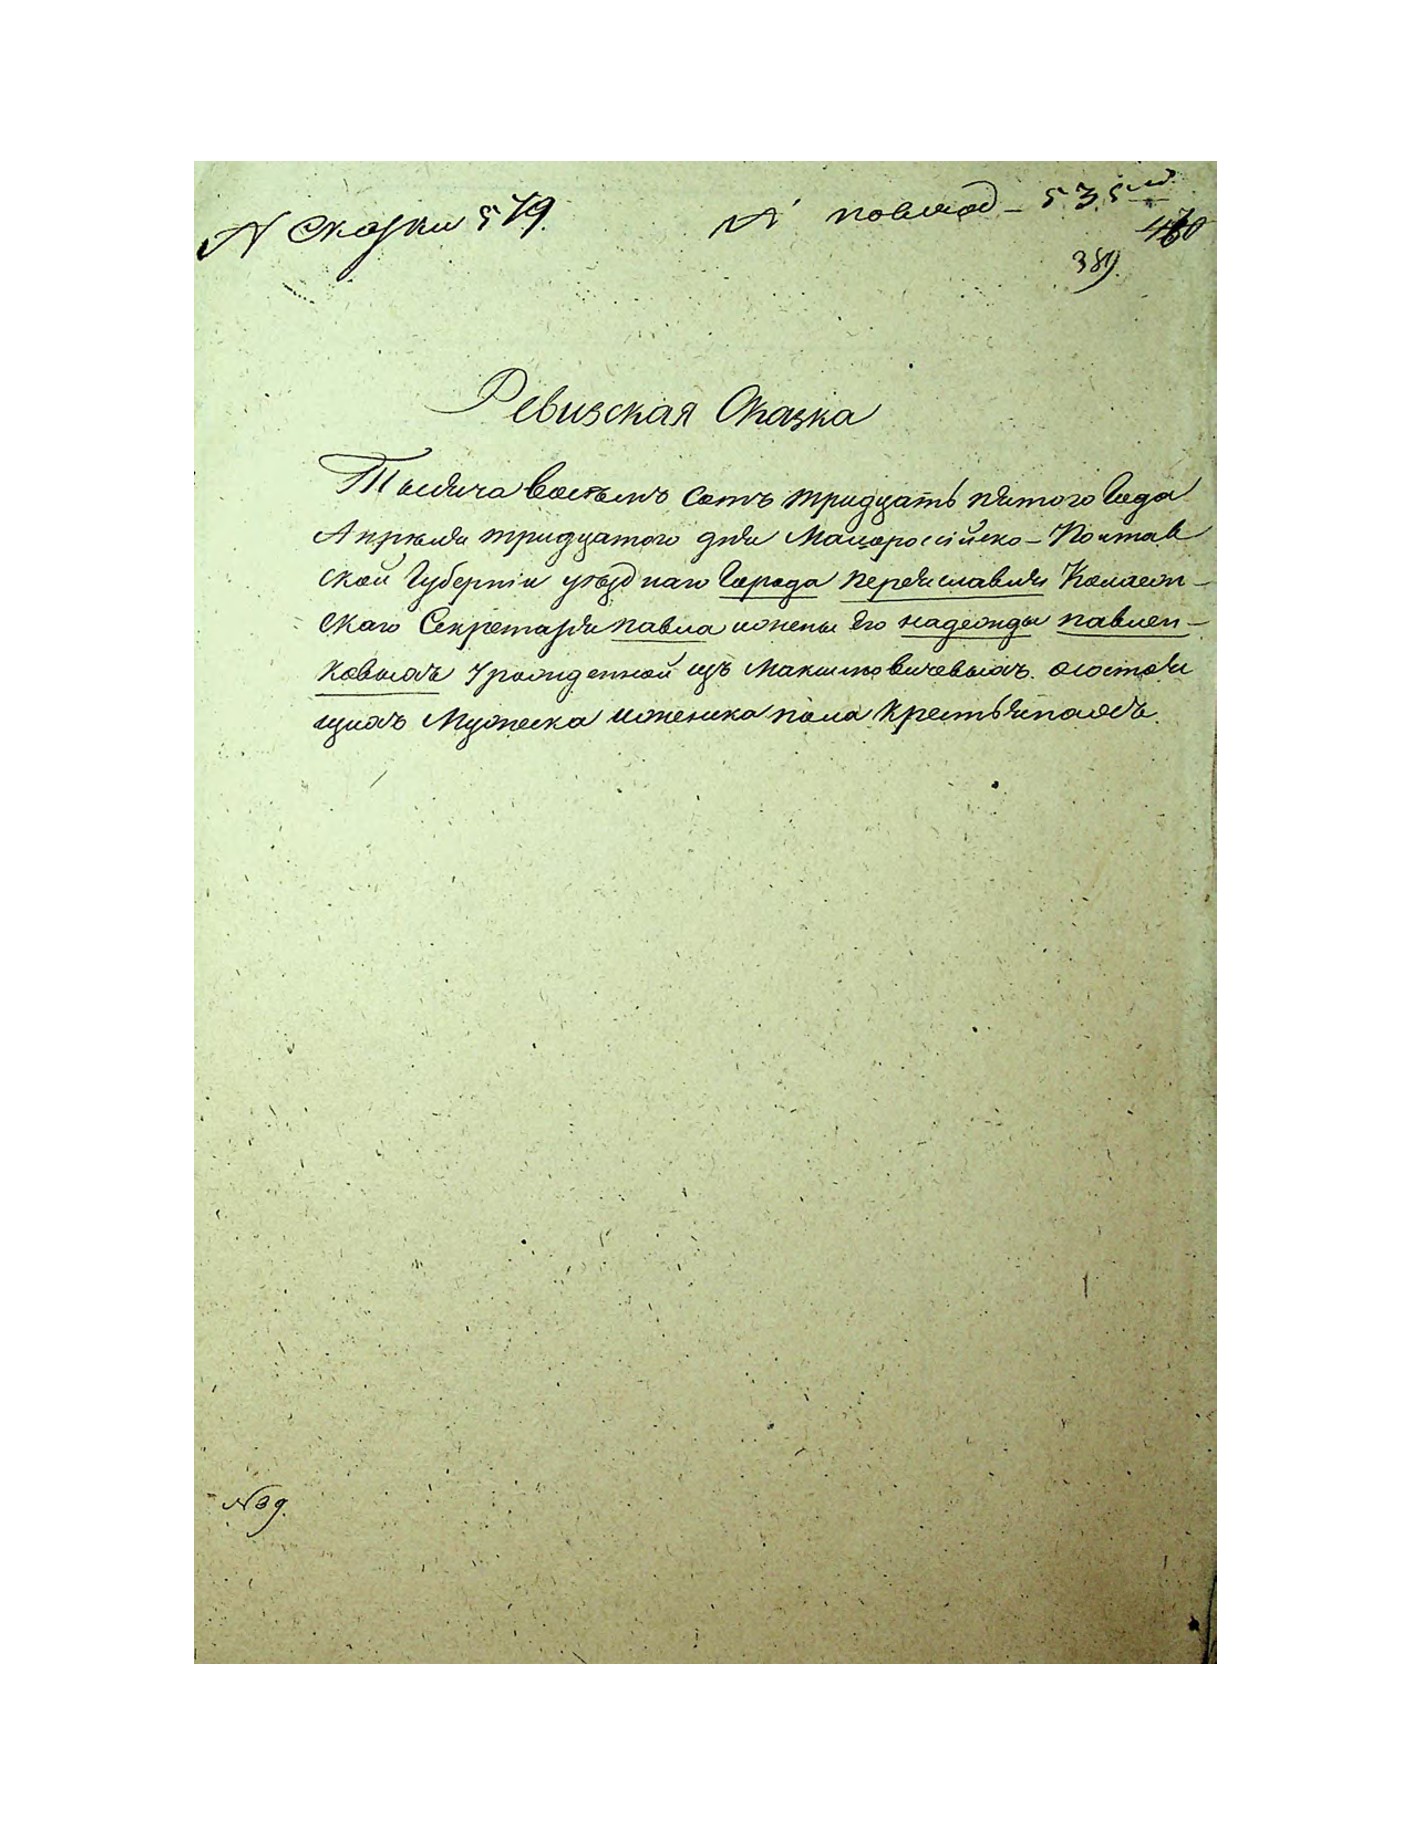 № Сказки 579.
389.
Ревизская Сказка
Тысяча восемь сотъ тридцать пятого Года
Апреля тридцатого дня Малороссійско-Полтав
ской Губерніи уезднаго Города Переяславля Коллеж-
скаго Секретаря Павла ижены Его надежды павлен-
ковыхъ Урожденной изъ Максимовичевыхъ. осостоя
щихъ Мужеска иженска пола крестьянахъ.
№ 39.